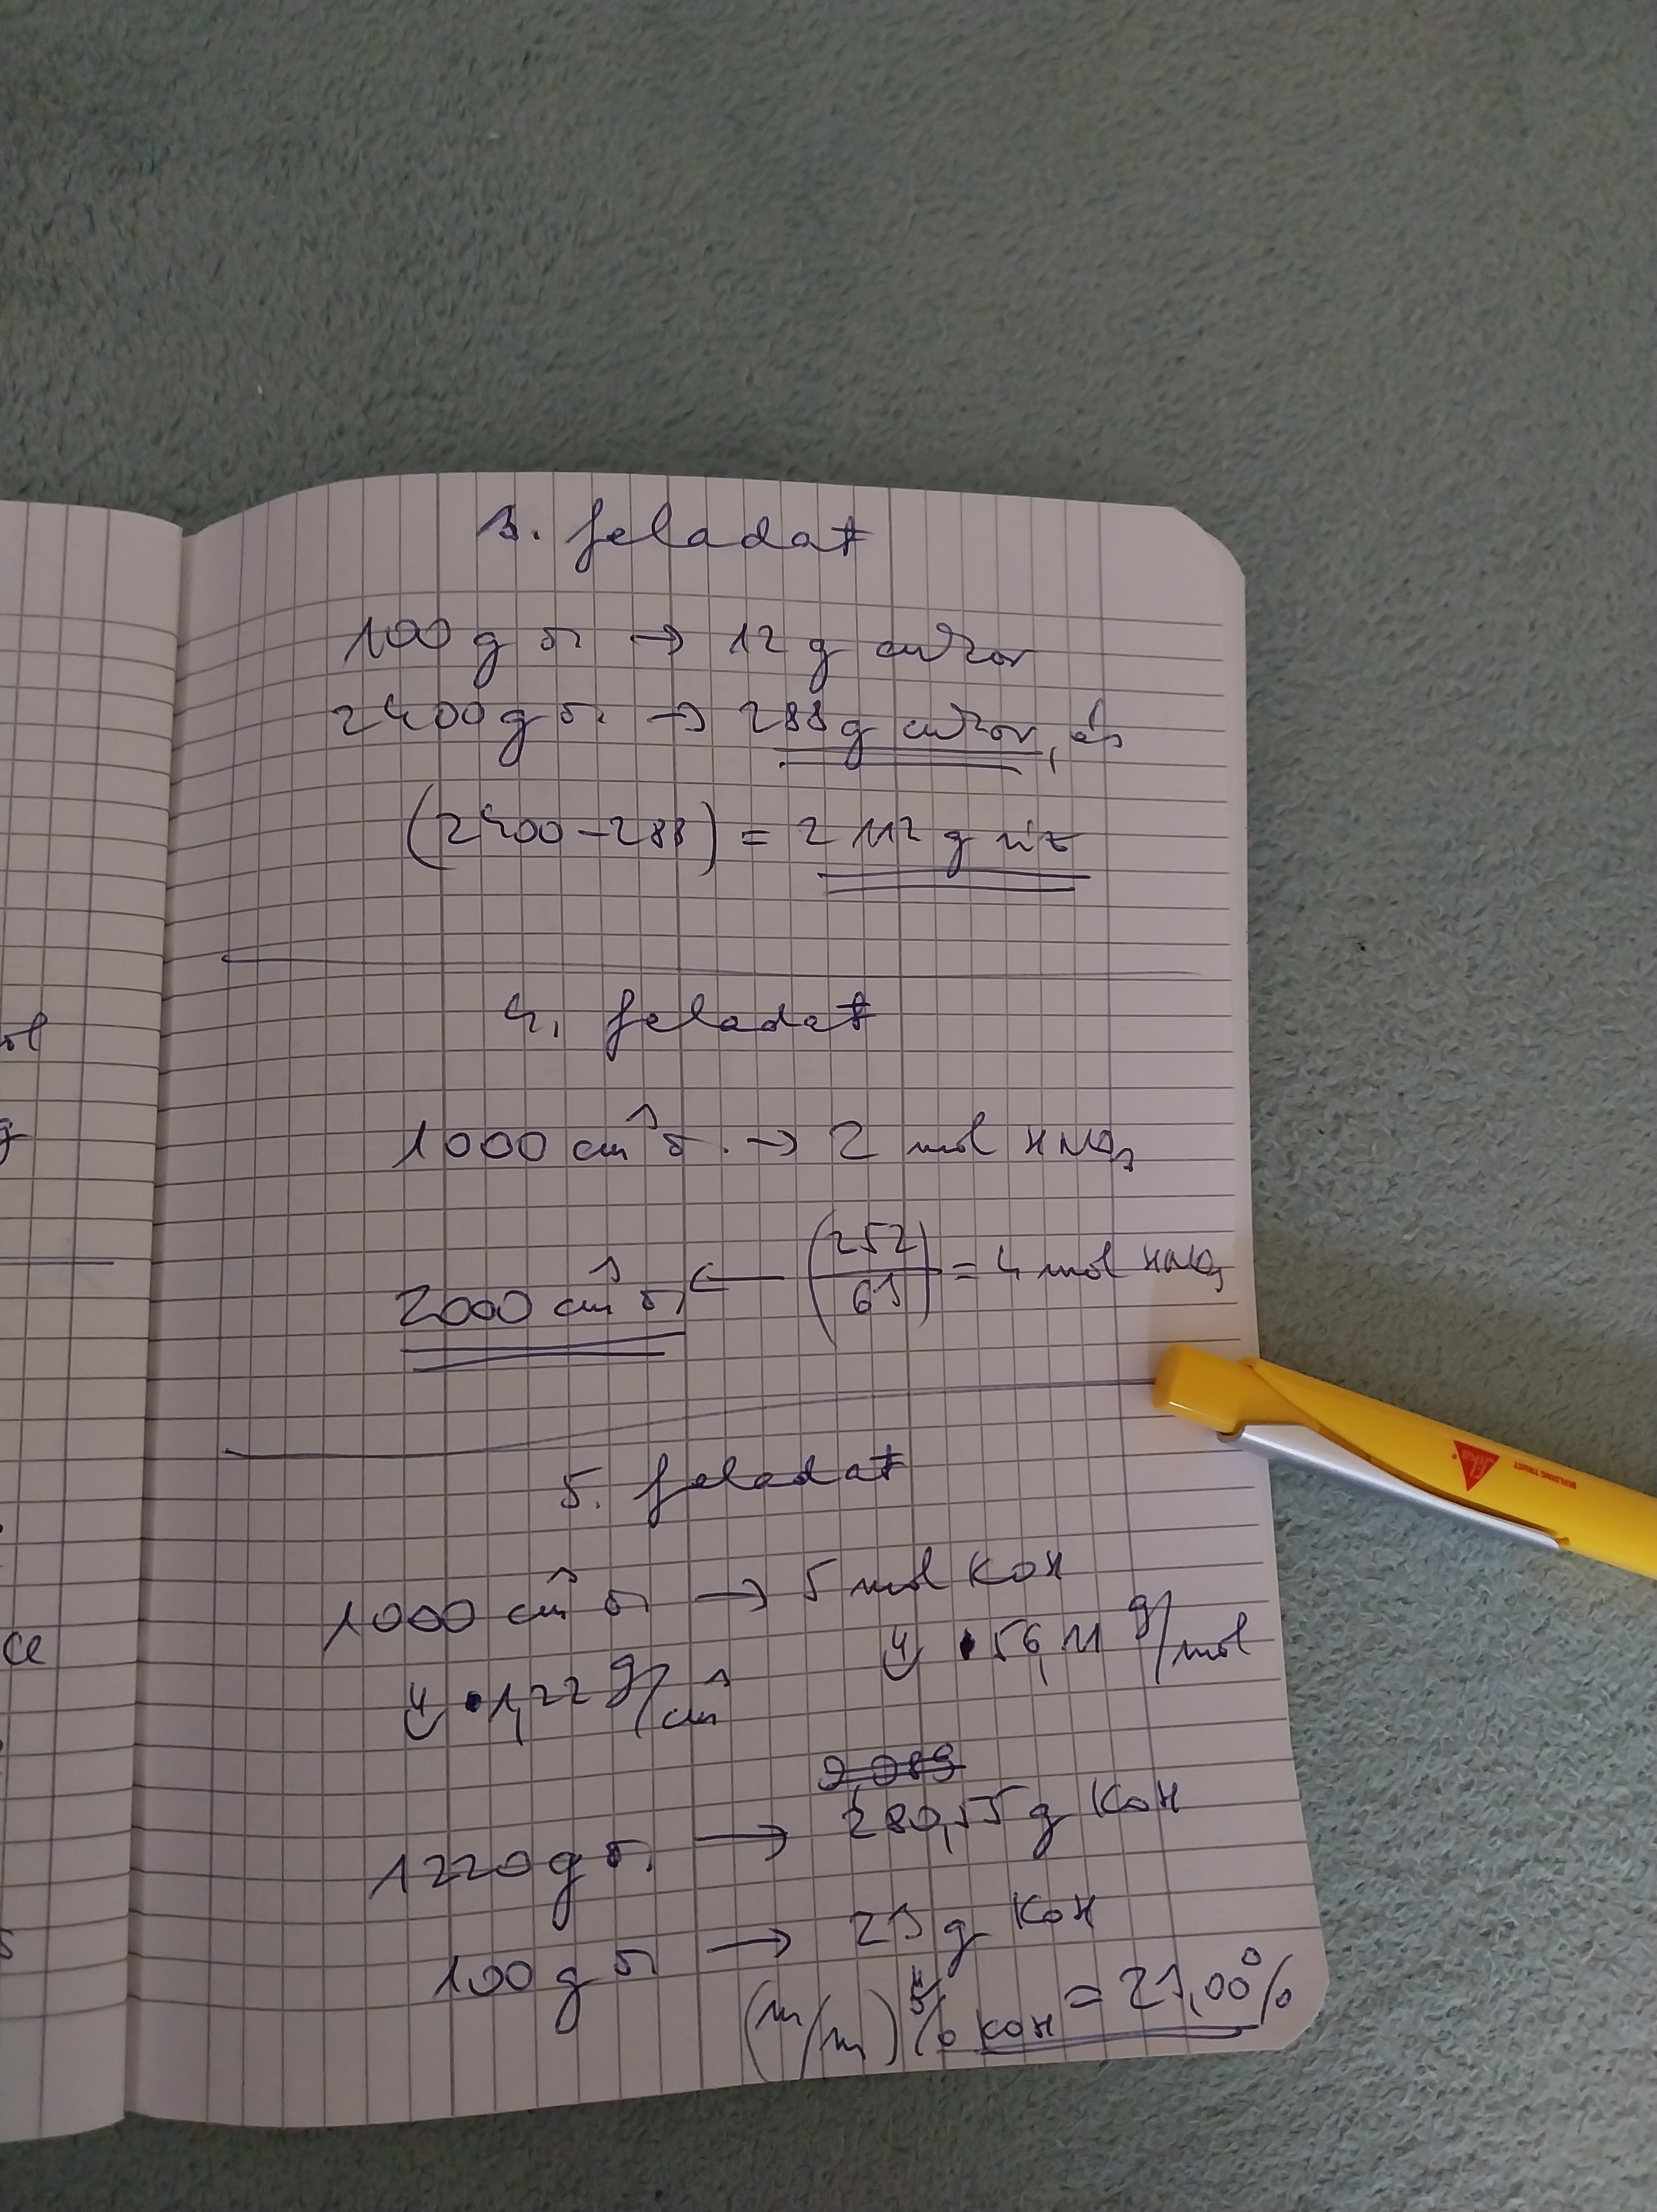 3. feladat
100 g o. → 12 g cukor
2400 g o. → 288 g cukor, és
(2400 - 288) = 2112 g víz
4. feladat
1000 cm³ o. → 2 mol HNO₃
2000 cm³ o. ← (252/63) = 4 mol HNO₃
5. feladat
1000 cm³ o. → 5 mol KOH
↓ • 1,22 g/cm³ ↓ • 56,11 g/mol
1220 g o. → 280,55 g KOH
100 g o. → 23 g KOH
(m/m)% KOH = 23,00%
ol
g
Ce
Sika
BUILDING TRUST